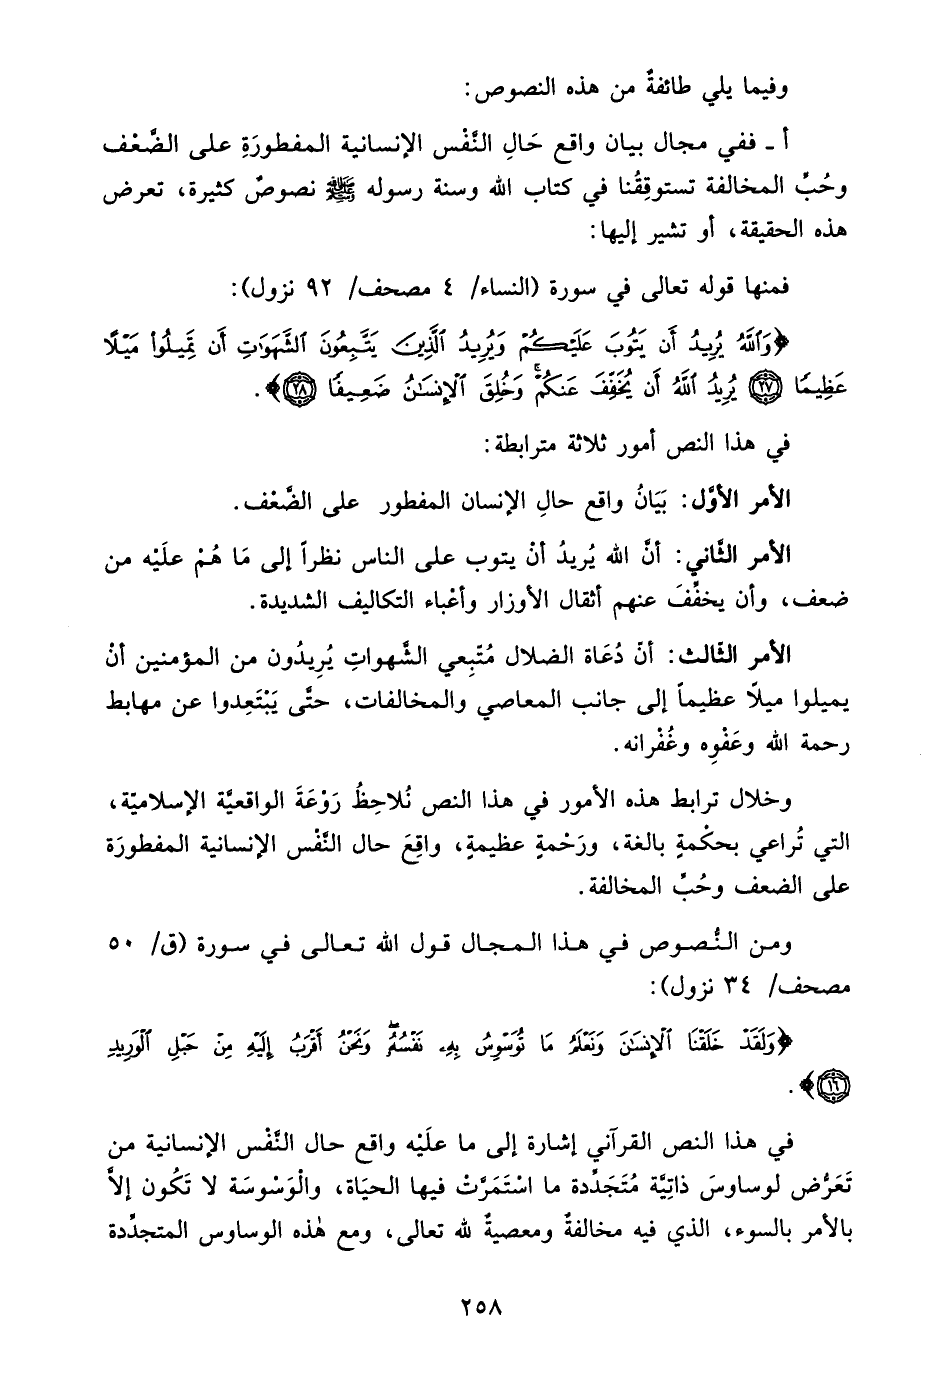 وفيما يلي طائفةٌ من هذه النصوص:
أ ـ ففي مجال بيان واقع حَالِ النَّفْس الإنسانية المفطورَةِ على الضَّعْف
وحُبِّ المخالفة تستوقِفُنا في كتاب الله وسنة رسوله ﷺ نصوصٌ كثيرة، تعرض
هذه الحقيقة، أو تشير إليها:
فمنها قوله تعالى في سورة (النساء/ ٤ مصحف/ ٩٢ نزول):
﴿وَٱللَّهُ يُرِيدُ أَن يَتُوبَ عَلَيۡكُمۡ وَيُرِيدُ ٱلَّذِينَ يَتَّبِعُونَ ٱلشَّهَوَٰتِ أَن تَمِيلُواْ مَيۡلًا
عَظِيمًا ٢٧ يُرِيدُ ٱللَّهُ أَن يُخَفِّفَ عَنكُمۡۚ وَخُلِقَ ٱلۡإِنسَٰنُ ضَعِيفًا ٢٨﴾.
في هذا النص أمور ثلاثة مترابطة:
الأمر الأوَّل: بَيَانُ واقع حالِ الإنسان المفطور على الضَّعْف.
الأمر الثَّاني: أنَّ الله يُريدُ أنْ يتوب على الناس نظراً إلى مَا هُمْ علَيْه من
ضعف، وأن يخفِّفَ عنهم أثقال الأوزار وأعْباء التكاليف الشديدة.
الأمر الثّالث: أنّ دُعَاة الضلال مُتَّبِعي الشَّهواتِ يُرِيدُون من المؤمنين أنْ
يميلوا ميلًا عظيماً إلى جانب المعاصي والمخالفات، حتَّى يَبْتَعِدوا عن مهابط
رحمة الله وعَفْوِه وغُفْرانه.
وخلال ترابط هذه الأمور في هذا النص نُلاحِظُ رَوْعَةَ الواقعيَّة الإسلاميّة،
التي تُراعي بحكْمةٍ بالغة، ورَحْمةٍ عظيمةٍ، واقِعَ حال النَّفْس الإنسانية المفطورَة
على الضعف وحُبِّ المخالفة.
ومن النُّصوص في هذا المجال قول الله تعالى في سورة (ق/ ٥٠
مصحف/ ٣٤ نزول):
﴿وَلَقَدۡ خَلَقۡنَا ٱلۡإِنسَٰنَ وَنَعۡلَمُ مَا تُوَسۡوِسُ بِهِۦ نَفۡسُهُۥۖ وَنَحۡنُ أَقۡرَبُ إِلَيۡهِ مِنۡ حَبۡلِ ٱلۡوَرِيدِ
١٦﴾.
في هذا النص القرآني إشارة إلى ما علَيْه واقع حال النَّفْس الإنسانية من
تَعَرُّض لوساوسَ ذاتِيَّة مُتَجَدِّدة ما اسْتَمَرَّتْ فيها الحيَاة، والْوَسْوسَة لا تَكُون إلاَّ
بالأمر بالسوء، الذي فيه مخالفةٌ ومعصيةٌ لله تعالى، ومع هٰذه الوساوس المتجدِّدة
٢٥٨